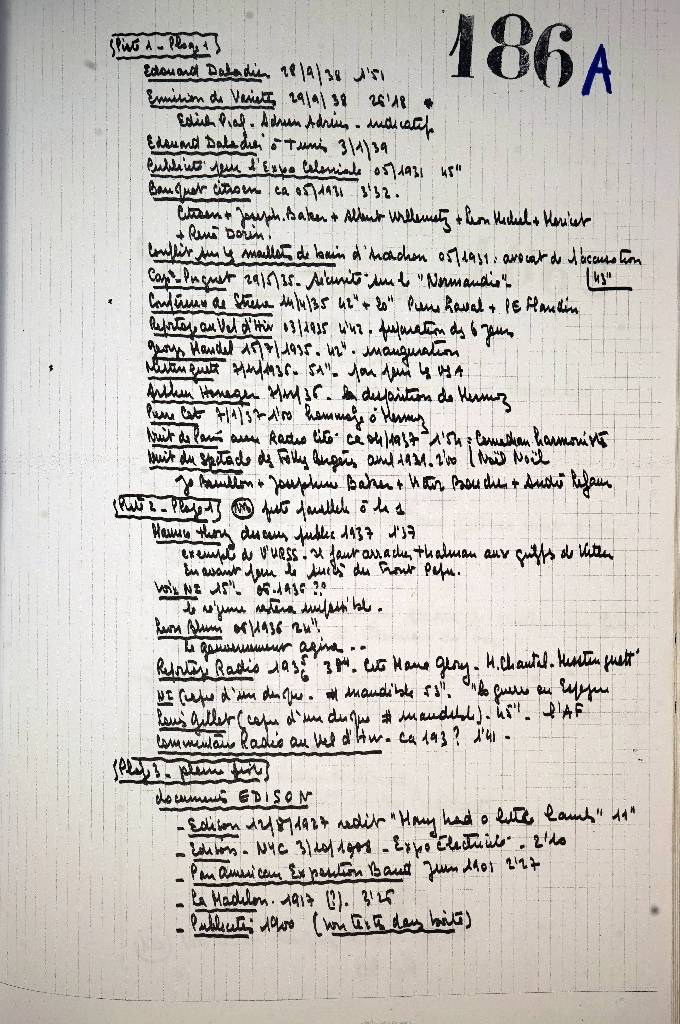 186 A
Piste 1 - Plage 1
Edouard Daladier 28/9/38 1'51
Emission de Variétés 29/9/38 26'18 *
Edith Piaf - Adrien Adrius - indicatif
Edouard Daladier à Tunis 3/1/39
Publicité pour l'Expo Coloniale 05/1931 45"
Banquet Citroen ca 05/1931 3'32.
Citroen + Joseph. Baker + Albert Willemetz + Leon + Henriot
+ René Dorin.
Conflit sur les maillots de bain d'Arcachon 05/1931: avocat de l'accusation
43"
Cap. Pugnet 29/5/35 - Sécurité sur le "Normandie"
Conférence de Stresa 14/4/35 42" + 20" Pierre Laval + PE Flandin
Reportage au Vel d'Hiv 03/1935 4'42 - préparation des 6 jours
Georges Mandel 15/7/1935 - 42" - inauguration
Mistinguett 1936 - 51" - pour les USA
Arthur Honegger 36 - la disparition de Mermoz
Pierre Cot 7/1/37 1'00 hommage à Mermoz
Nuit de Paris avec Radio Cité - ca 04/1937 - 1'54 = Comedian harmonists
Nuit du spectacle des Folies Bergère avril 1937. 2'00 Noël Noël
Jo Bouillon + Josephine Baker + + André
Piste 2 - Plage 1 NB piste parallèle à la 1
Maurice Thorez discours public 1937 1'37
exemple de l'URSS - il faut arracher Thalman aux griffes de Hitler
En avant pour le succès du Front Pop.
Voix NI 15" - 06-1936 ??
le régime restera impossible.
Léon Blum 06/1936 24"
Le gouvernement agira ..
Reportage Radio 1935 6 38" - - H. Chantal - Mistinguett
NI (copie d'un disque - # inaudible 53" - "la guerre en Espagne
Louis Gillet (copie d'un disque # inaudible) - 45" - l'AF
Commentaire Radio au Vel d'Hiv - ca 193? 1'41 -
Plage 3 - pleine piste
documents EDISON
- Edison 12/8/1927 redit "Mary had a little lamb" 11"
- Edison - NYC 3/10/1908 - Expo Electricité - 2'10
- Pan American Exposition Band Juin 1901 2'27
- La Madelon - 1917 (?). 3'25
- Publicités 1900 (voir texte dans boîte)